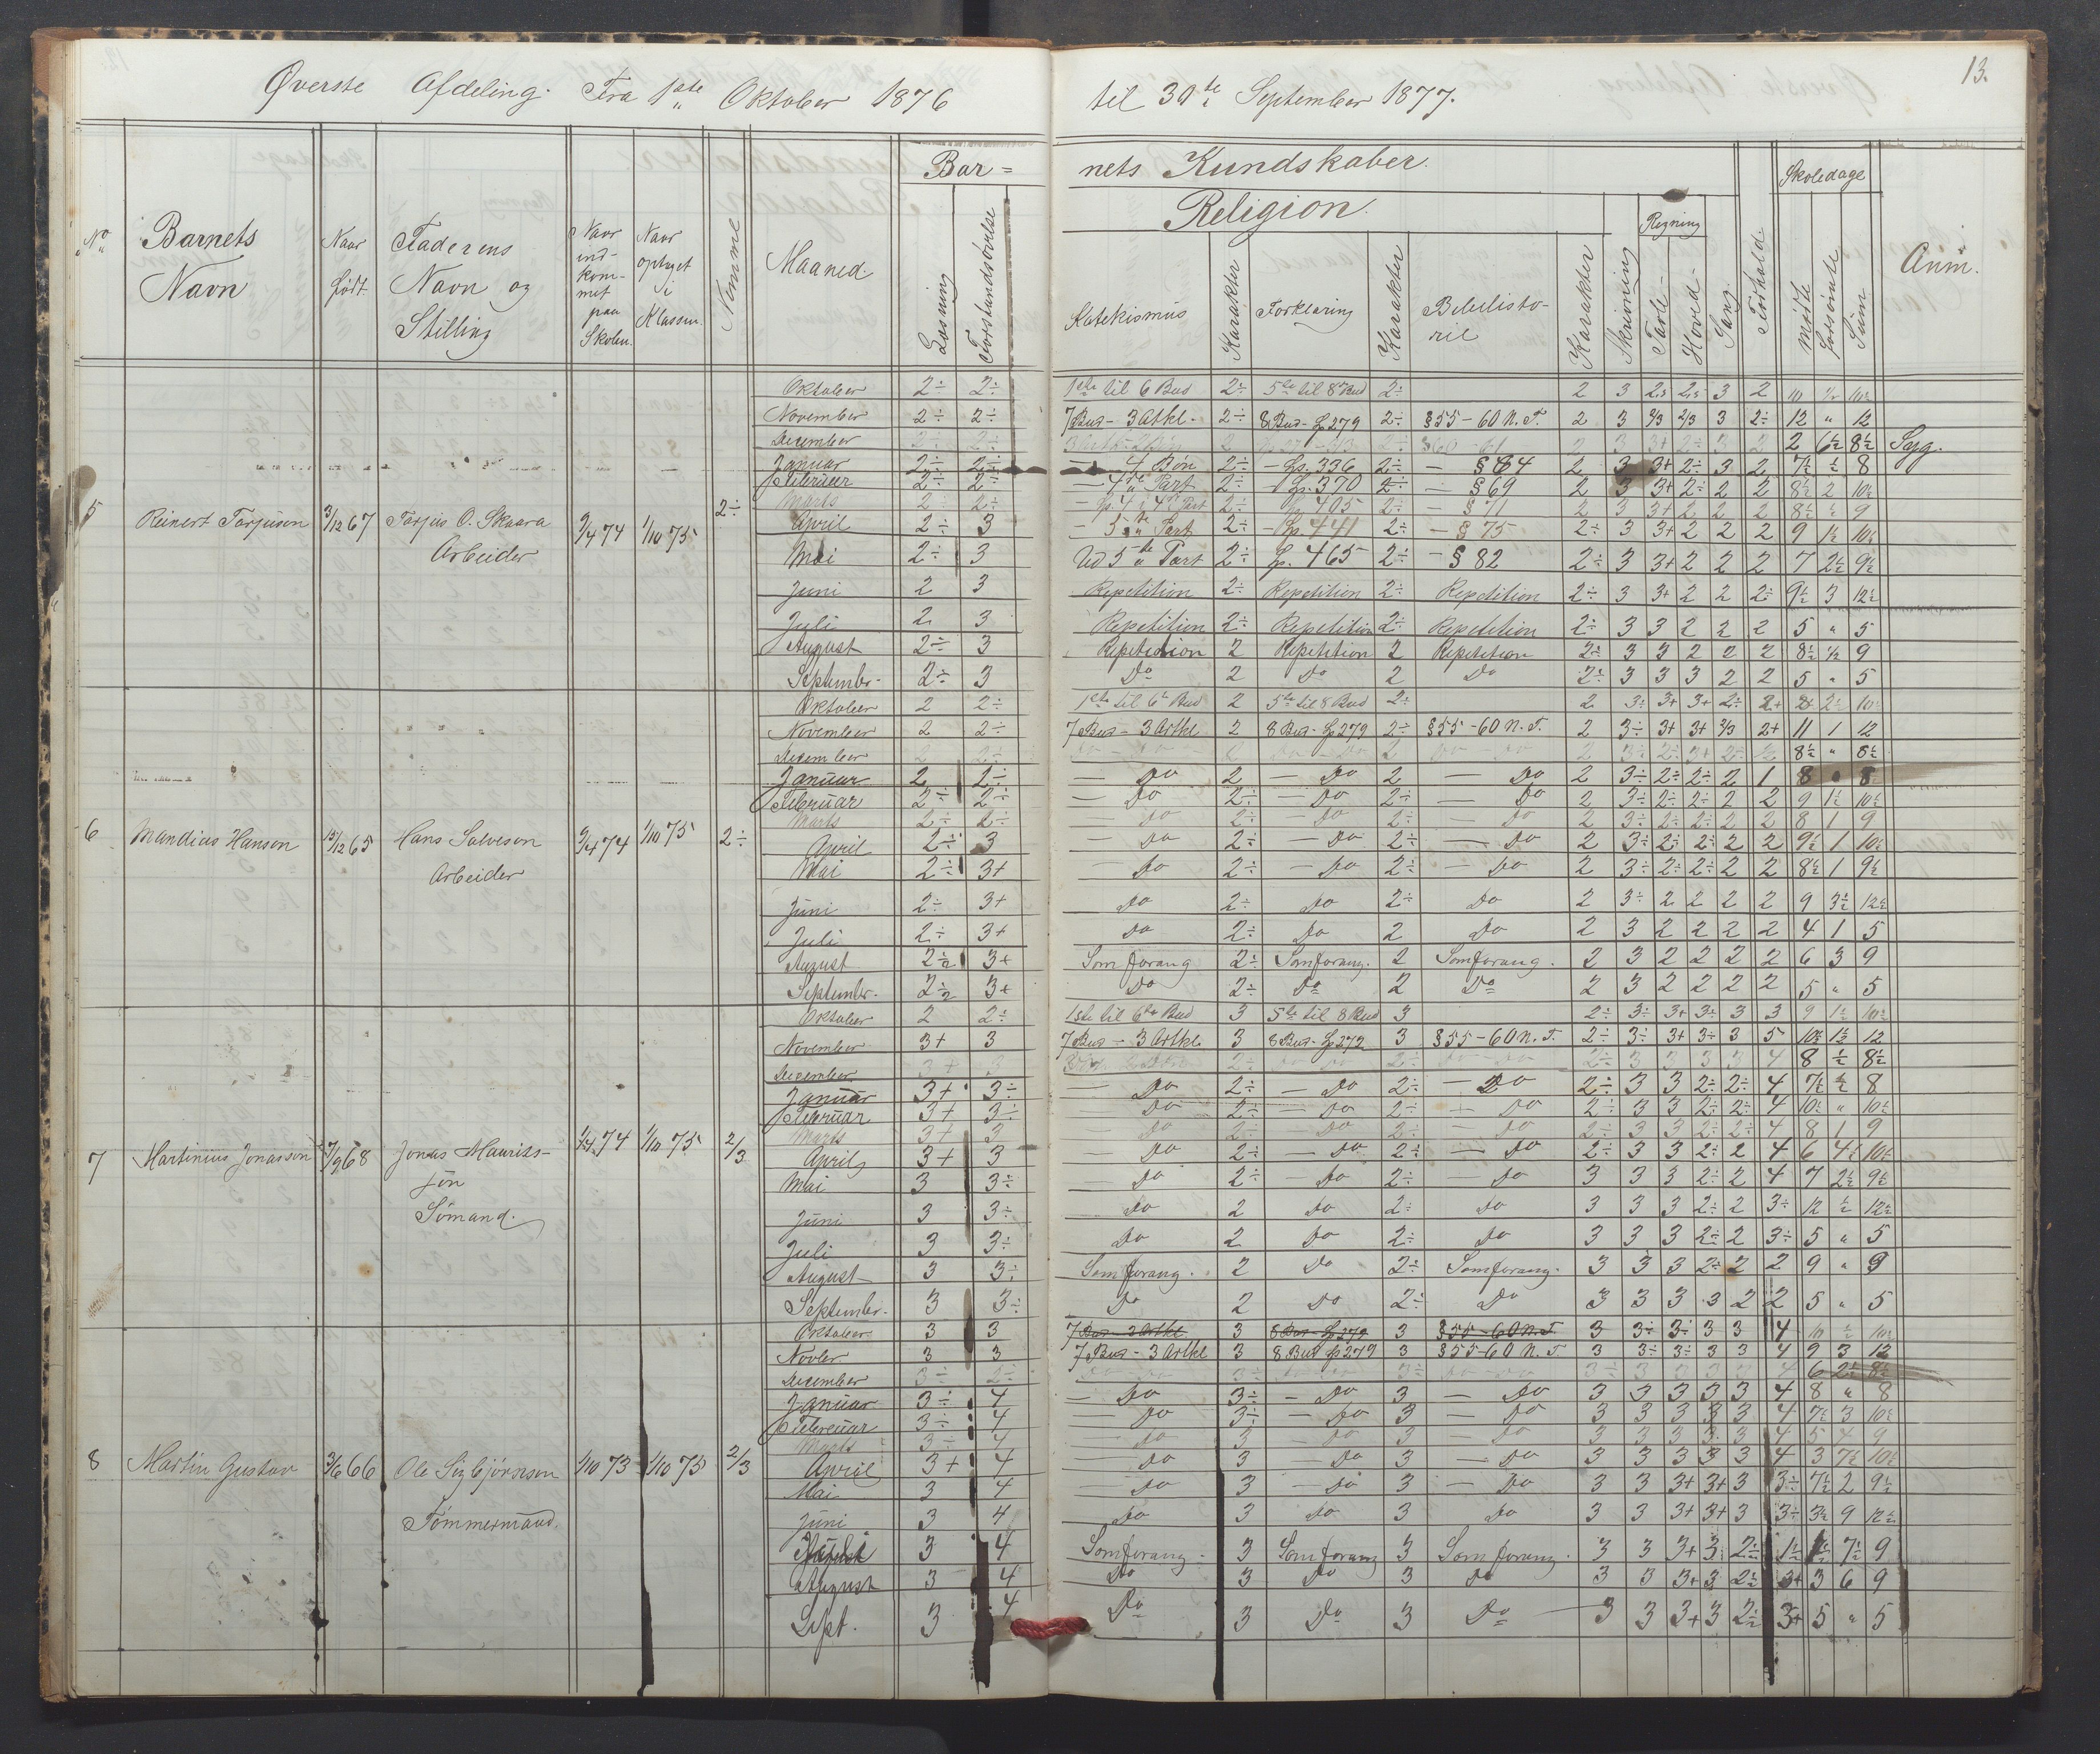 13.
Øverste Afdeling. Fra 1ste Oktober 1876 til 30te September 1877.
Bar= nets Kundskaber.
Skoledage
Religion.
Regning
No Barnets Navn
Naar født
Faderens Navn og Stilling
Naar ind-kom-met paa Skolen.
Naar optaget i Klassen.
Nemme
Maaned.
Læsning
Forstandsøvelse
Katekismus
Karakter
Forklaring
Karakter
Bibelhisto-rie
Karakter
Skrivning
Tavle-
Hoved-
Sang
Forhold
Mødte
Forsømte
Sum
Anm.
5 Reinert Torjusen 3/12 67 Torjus O. Skaara Arbeider 9/4 74 1/10 75 2÷
Oktober 2÷ 2÷ 1ste til 6 Bud 2÷ 5te til 8 Bud 2÷ 2 3 3 2 10 ½ 10½
November 2÷ 2÷ 7 Bud - 3 Artkl. 2÷ 8 Bud - p 279 2÷ §55-60 N. T. 2 3 2/3 2/3 3 2÷ 12 " 12
December 2 6½ 8½ Syg.
Januar 2÷ 2÷ - 4 Bøn 2÷ - p. 336 2÷ - §64 2 3 3+ 2÷ 3 2 7½ ½ 8
Februar 2÷ 2÷ - 4de Part 2÷ - p. 370 2÷ - §69 2 3 3+ 2÷ 2 2 8½ 2 10½
Marts 2÷ 2÷ - p. 4 4de Part 2÷ p 405 2÷ - §71 2 3 3+ 2 2 2 8½ ½ 9
April 2÷ 3 - 5te Part 2÷ - p. 441 2÷ - §75 2÷ 3 3+ 2 2 2 9 1½ 10½
Mai 2÷ 3 Ud 5te Part 2÷ p. 465 2÷ - §82 2÷ 3 3+ 2 2 2 7 2½ 9½
Juni 2 3 Repetition 2÷ Repetition 2÷ Repetition 2÷ 3 3+ 2 2 2÷ 9½ 3 12½
Juli 2 3 Repetition 2÷ Repetition 2÷ Repetition 2÷ 3 3 2 2 2 5 " 5
August 2÷ 3 Repetition 2 Repetition 2 Repetition 2÷ 3 3 2 2 2 8½ ½ 9
Septembr. 2÷ 3 Do 2 Do 2 Do 2÷ 3 3 3 2 2 5 " 5
6 Mandius Hansen 15/12 65 Hans Salvesen Arbeider 9/4 74 1/10 75 2÷
Oktober 2 2÷ 1ste til 6te Bud 2 5te til 8 Bud 2÷ 2 3÷ 3+ 3+ 2÷ 2+ 8 2½ 10½
November 2 2÷ 7 Bud - 3 Artkl 2 8 Bud - p 279 2÷ §55-60 N. T. 2 3÷ 3+ 3+ 2/3 2+ 11 1 12
December 8½ " 8½
Januar 2 2÷ - Do 2 - Do 2 - Do 2 3÷ 2÷ 2÷ 2 1 8 " 8
Februar 2÷ 2÷ - Do 2÷ - Do 2÷ - Do 2 3÷ 2÷ 2÷ 2 2 9 1½ 10½
Marts 2÷ 2÷ - Do 2÷ - Do 2÷ - Do 2 3÷ 2÷ 2÷ 2 2 8 1 9
April 2÷ 3 - Do 2÷ - Do 2÷ - Do 2 3÷ 2÷ 2÷ 2 2 9½ 1 10½
Mai 2÷ 3+ - Do 2÷ - Do 2÷ - Do 2 3÷ 2÷ 2÷ 2 2 8½ 1 9½
Juni 2÷ 3+ Do 2÷ Do 2÷ Do 2 3÷ 2 2 2 2 9 3½ 12½
Juli 2÷ 3+ Do 2÷ Do 2 Do 2 3 2 2 2 2 4 1 5
August 2÷ 3+ Som forang 2÷ Som forang. 2 Som forang. 2 3 2 2 2 2 6 3 9
Septembr. 2÷ 3+ Do 2÷ Do 2 Do 2 3 2 2 2 2 5 " 5
7 Martinius Jonassen 7/9 68 Jonas Maurits-søn Sømand. 74 1/10 75 2/3
Oktober 2 2÷ 1ste til 6te Bud 3 5te til 8 Bud 3 2÷ 3÷ 3+ 3÷ 3 3 9 1½ 10½
November 3+ 3 7 Bud - 3 Artkl 3 8 Bud - p 279 3 §55-60 N. T. 2÷ 3÷ 3+ 3÷ 3 5 10½ 1½ 12
December 3+ 3 4 8 ½ 8½
Januar 3+ 3÷ - Do 2÷ - Do 2÷ - Do 2÷ 3 3 2÷ 2÷ 4 7½ ½ 8
Februar 3+ 3÷ - Do 2÷ - Do 2÷ - Do 2÷ 3 3 2÷ 2÷ 4 10½ " 10½
Marts 3+ 3 - Do 2÷ - Do 2÷ - Do 2÷ 3 3 2÷ 2÷ 4 8 1 9
April 3+ 3 - Do 2÷ - Do 2÷ - Do 2÷ 3 3 2÷ 2 4 6 4½ 10½
Mai 3 3÷ - Do 2÷ - Do 2÷ - Do 3 3 3 2÷ 2 4 7 2½ 9½
Juni 3 3÷ Do 2 Do 2÷ Do 3 3 3 2÷ 2 3÷ 12 ½ 12½
Juli 3 3÷ Do 2 Do 2÷ Do 3 3 3 2÷ 2 3÷ 5 " 5
August 3 3÷ Som forang. 2 Do 2÷ Som forang. 3 3 3 2÷ 2 2 9 " 9
Septembr. 3 3÷ Do 2 Do 2÷ Do 3 3 3 3 2 2 5 " 5
8 Martin Gustav 3/6 66 Ole Sigbjørnsen Tømmermand. 1/10 73 1/10 75 2/3
Oktober 3 3 7 Bud - 3 Artkl 3 8 Bud - p 279 3 §55-60 N. T. 3 3÷ 3÷ 3 3 4 10 ½ 10½
Novbr. 3 3 7 Bud - 3 Artkl 3 8 Bud p 279 3 §55-60 N. T 3 3÷ 3÷ 3 3 4 9 3 12
December 3÷ 2÷ 4 6 2½ 8½
Januar 3÷ 4 - Do 3÷ - Do 3 - Do 3 3 3 3 3 4 8 " 8
Februar 3÷ 4 - Do 3÷ - Do 3 - Do 3 3 3 3 3 4 7½ 3 10½
Marts 3÷ 4 - Do 3 - Do 3 - Do 3 3 3 3 3 4 5 4 9
April 3+ 4 - Do 3 - Do 3 - Do 3 3 3 3 3 4 3 7½ 10½
Mai 3 4 - Do 3 - Do 3 - Do 3 3 3+ 3+ 3 3÷ 7½ 2 9½
Juni 3 4 Do 3 Do 3 Do 3 3 3+ 3+ 3 3÷ 3½ 9 12½
3 4 Som forang. 3 Som forang 3 Som forang. 3 3 3+ 3 2÷ 7½ 9
August 3 4 Do 3 Do 3 Do 3 3 3+ 3 2÷ 3+ 3 6 9
Sept. 3 4 Do 3 Do 3 Do 3 3 3+ 3 2÷ 3+ 5 " 5